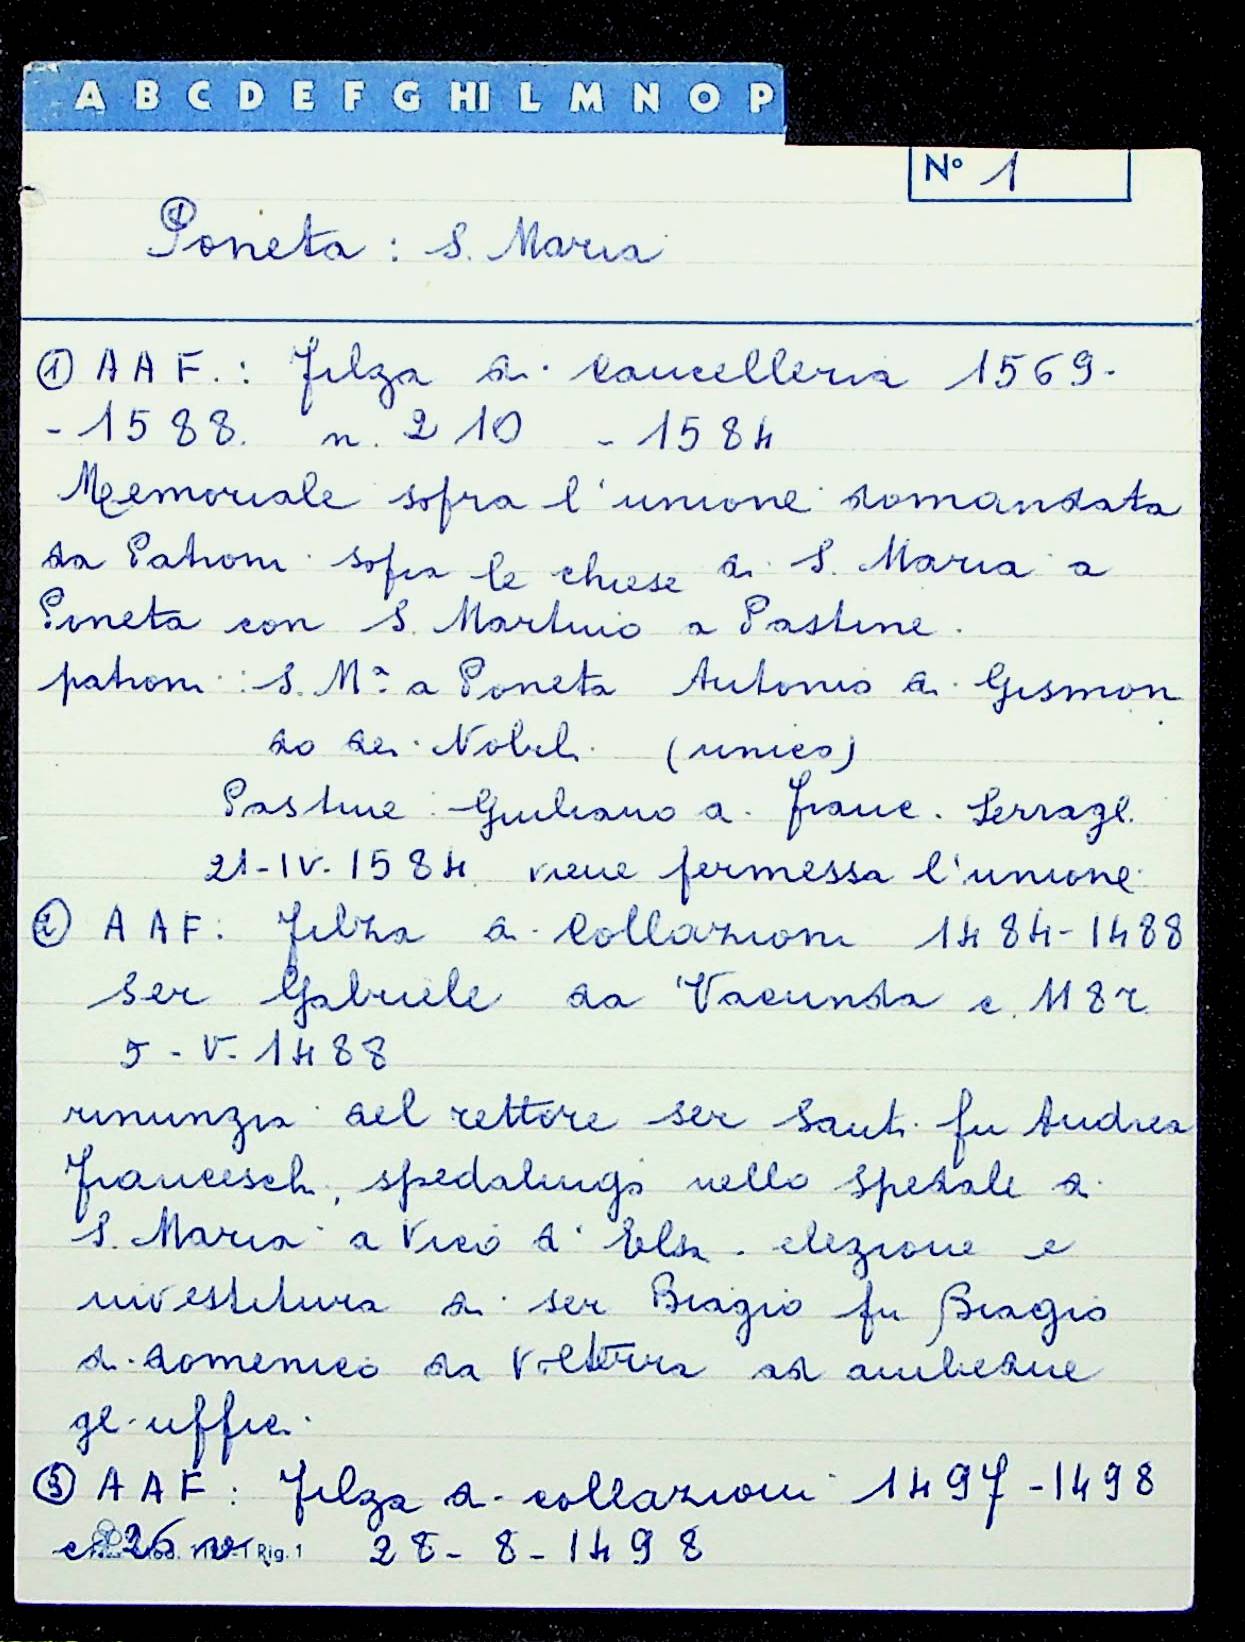 A B C D E F G HI L M N O P
N° 1
Poneta : S. Maria
① A A F. : Filza di Cancelleria 1569-
-1588. n. 210 - 1584
Memoriale sopra l'unione domandata
da Patroni sopra le chiese di S. Maria a
Poneta con S. Martino a Pastine.
patroni : S. Mª a Poneta Antonio di Gismon
do dei Nobili (unico)
Pastine : Giuliano di Franc. Serragl.
21-IV-1584 viene permessa l'unione
② A A F : Filza di Collazioni 1484-1488
ser Gabriele da c. 118 r.
5-V-1488
rinunzia del rettore ser Santi fu Andrea
Franceschi, spedalingo nello spedale di
S. Maria a Vico d'Elsa. elezione e
investitura di ser Biagio fu Biagio
di domenico da Volterra ad ambedue
gli uffici.
③ A A F : Filza di collazioni 1497-1498
26 v 28-8-1498
Rig. 1